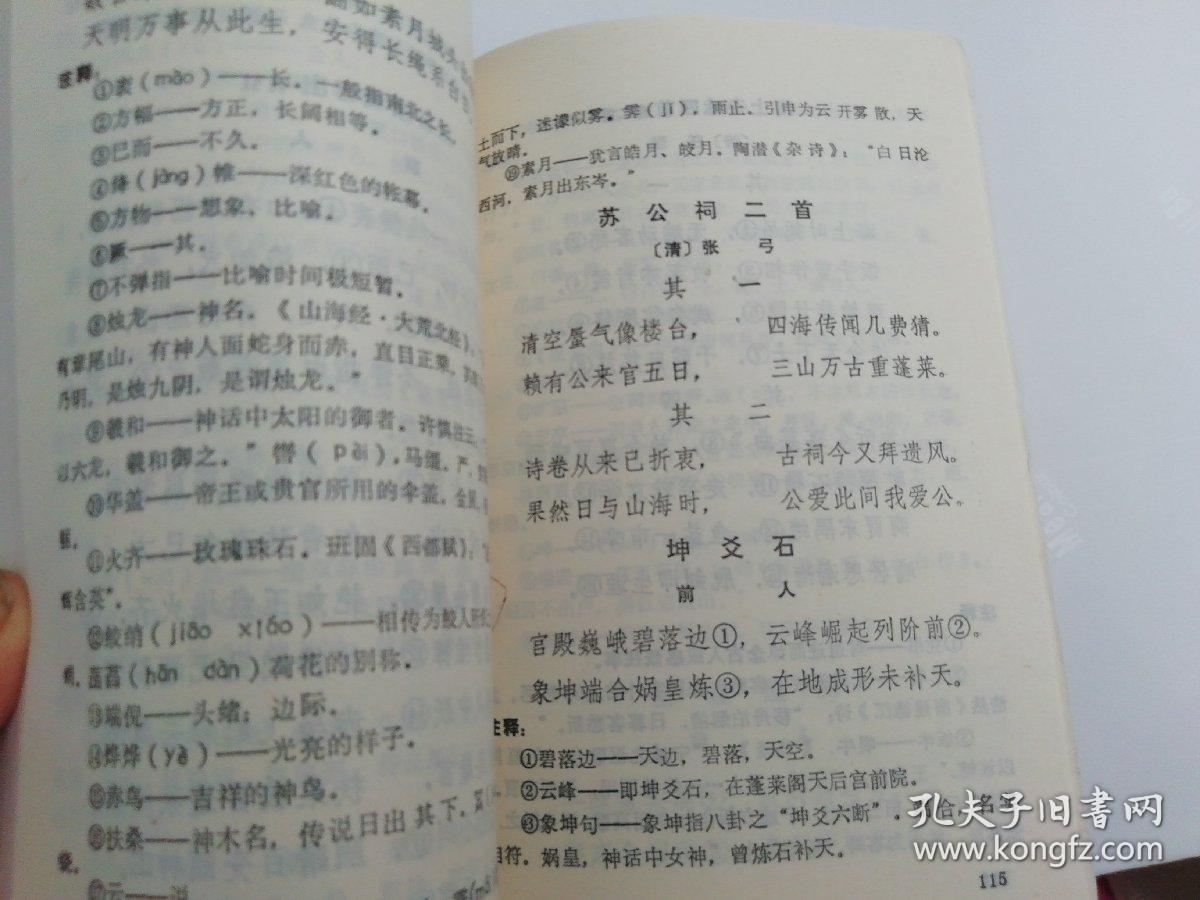 高如素月城头
天明万事从此生，安得长绳系台
注释：
①袤（mào）——长。一般指南北之长。
②方幅——方正，长阔相等。
③已而——不久。
④绛（jàng）帷——深红色的帐幕。
⑤方物——想象，比喻。
⑥厥——其。
⑦不弹指——比喻时间极短暂。
⑧烛龙——神名。《山海经·大荒北经》
有章尾山，有神人面蛇身而赤，直目正乘，
乃明，是烛九阴，是谓烛龙。”
⑨羲和——神话中太阳的御者。许慎注云：
以六龙，羲和御之。”辔（pèi），马缰。
⑩华盖——帝王或贵官所用的伞盖，
⑪火齐——玫瑰珠石。班固《西都赋》：
含英”。
⑫鲛绡（jiāo xiāo）——相传为鲛人所
绡。菡萏（hān dàn）荷花的别称。
⑬端倪——头绪；边际。
⑭烨烨（yè）——光亮的样子。
⑮赤乌——吉祥的神鸟。
⑯扶桑——神木名，传说日出其下。
土而下，迷濛似雾。霁（jì），雨止。引申为云开雾散，天
气放晴。
⑲素月——犹言皓月、皎月。陶潜《杂诗》：“白日沦
西河，素月出东岑。”
苏公祠二首
〔清〕张弓
其一
清空蜃气像楼台，四海传闻几费猜。
赖有公来官五日，三山万古重蓬莱。
其二
诗卷从来已折衷，古祠今又拜遗风。
果然日与山海时，公爱此间我爱公。
坤爻石
前人
宫殿巍峨碧落边①，云峰崛起列阶前②。
象坤端合娲皇炼③，在地成形未补天。
注释：
①碧落边——天边，碧落，天空。
②云峰——即坤爻石，在蓬莱阁天后宫前院。
③象坤句——象坤指八卦之“坤爻六断”。合，名与
相符。娲皇，神话中女神，曾炼石补天。
115
孔夫子旧书网
www.kongfz.com